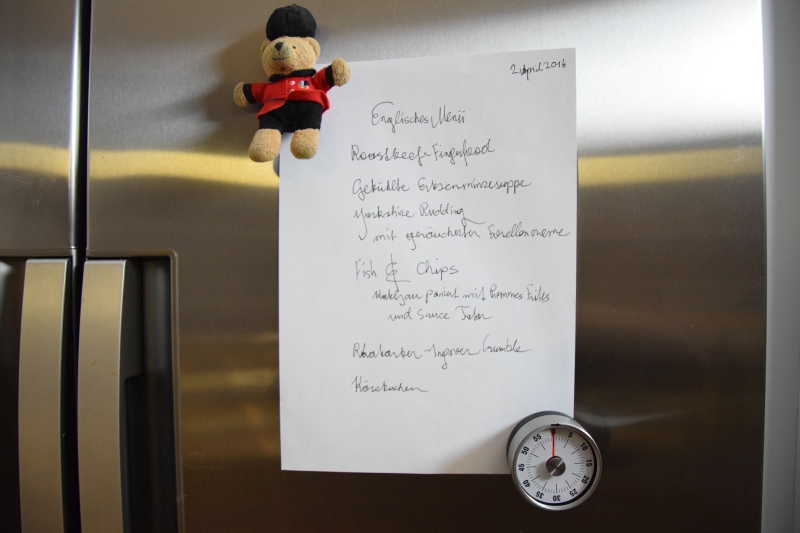 2. April 2016
Englisches Menü
Roastbeef-Fingerfood
Gekühlte Erbsenminzesuppe
Yorkshire Pudding
mit geräucherter Forellencreme
Fish & Chips
paniert mit Pommes Frites
und Sauce Tartar
Rhabarber-Ingwer Crumble
Käsekuchen
0 5 10 15 20 25 30 35 40 45 50 55